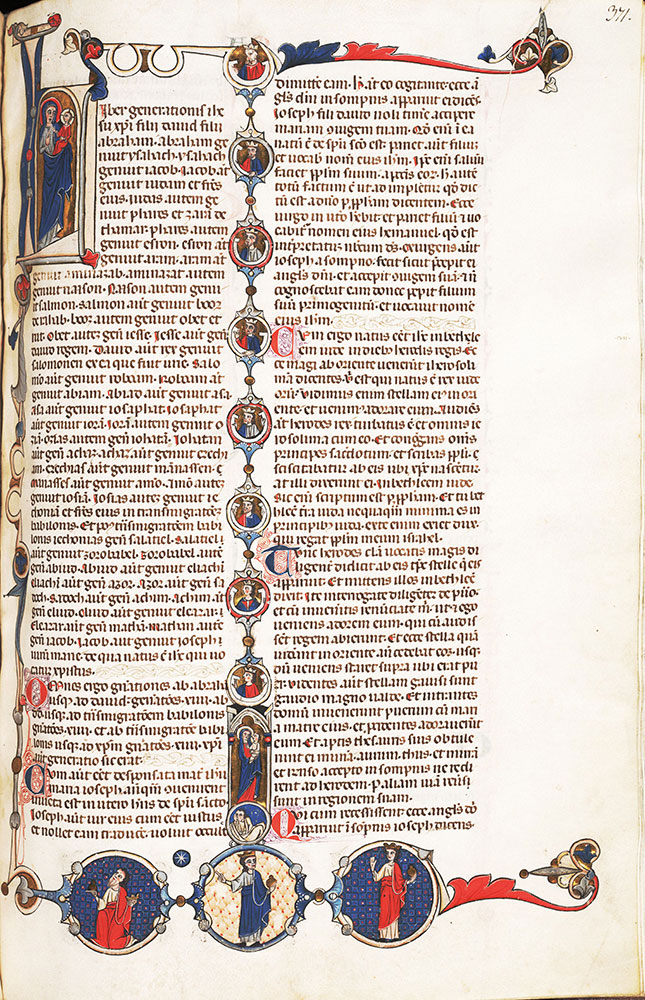 371.
Liber generationis ihe
su xpi filii dauid filii
abraham. abraham ge
nuit ysaach. ysaach
genuit iacob. iacob aut
genuit iudam et fres
eius. iudas autem ge
nuit phares et zaram de
thamar. phares autem
genuit esrom. esrom aut
genuit aram. aram aut
genuit aminazab. aminazab autem
genuit naason. Naason autem genuit
salmon. Salmon aut genuit booz
de rahab. booz autem genuit obet et
ruth. Obet aute gen iesse. Iesse aut gen
dauid regem. Dauid aut rex genuit
salomonem ex ea que fuit urie. Salo
mon aut genuit roboam. Roboam aut
genuit abiam. Abia aut genuit asa.
asa aut genuit iosaphat. iosaphat
aut genuit ioram. ioram autem genuit o
ziam. ozias autem genuit ioatham. Ioatham
aut gen achaz. achaz aut genuit ezech
iam. ezechias aut genuit manassen.
manasses aut genuit amon. Amon autem
genuit iosiam. Iosias autem genuit ie
chonia et fres eius in transmigratione
babilonis. Et post transmigratione babi
lonis iechonias gen salatiel. Salatiel
aut genuit zorobabel. Zorobabel aute
gen abiud. Abiud aut genuit eliachim
eliachim aut gen azor. Azor aut gen sa
doch. Sadoch aut gen achim. Achim aut
gen eliud. Eliud aut genuit eleazar.
Eleazar aut gen mathan. Mathan aute
gen iacob. Iacob aut genuit ioseph
uirum marie. de qua natus e ihc qui uo
catur xpistus.
Omnes ergo gnationes ab abraham
usq. ad dauid. gnationes xiiii. ab
dauid usq. ad transmigratione babilonis
gnationes xiiii. et ab transmigratione babi
lonis usq. ad xpm gnationes. xiiii. xpi
aut generatio sic erat.
Cum aut eet desponsata mat ihu
maria ioseph. anteqm conuenirent
inuenta est in utero hns de spu sancto.
Ioseph aut uir eius cum eet iustus
et nollet eam traducere. uoluit occulte
dimittere eam. Hec aut eo cogitante. ecce an
gls dni in sompnis apparuit ei dicens.
Ioseph fili dauid noli timere accipere
mariam coniugem tuam. Qd eni in ea
natu e de spu sco est. pariet aut filium
et uocabis nom eius ihm. Ipe eni saluu
faciet pplm suum. a peccatis eor. Hoc aut
totu factum e ut ad impletur qd dic
tu est a dno per pplam dicentem. Ecce
uirgo in utero hebit et pariet filiu et uo
cabit nomen eius hemanuel. quod est
interpretatum nobiscum ds. exurgens aut
ioseph a sompno. fecit sicut precepit ei
angls dni. et accepit coniugem suam. et non
cognoscebat eam donec peperit filium
suum primogenitum. et uocauit nomen
eius ihm.
Cum ergo natus eet ihc in bethlee
em iude in dieb herodis regis. Ec
ce magi ab oriente uenerunt iherosoli
ma dicentes. Vbi est qui natus e rex iude
oru. vidimus enim stellam eius in ori
ente. et uenimus adorare eum. Audiens
aut herodes rex. turbatus e et omnis ie
rosolima cum eo. Et congregans omnes
principes sacerdotum et scribas ppli.
sciscitabatur ab eis ubi xpc nasceretur
at illi dixerunt ei. In bethleem iude.
sic eni scriptum est per pplam. Et tu bet
hlee terra iuda nequaqm minima es in
principibus iuda. ex te enim exiet dux
qui regat pplm meum israhel.
Tunc herodes clam uocatis magis di
ligent didicit ab eis tps stelle q eis
apparuit. Et mittens illos in bethlee
dixit. Ite interrogate diligenter de puero.
et cu inueneritis renunciate m. ut et ego
ueniens adorem eum. Qui cu audis
sent regem abierunt. Et ecce stella quam
uiderant in oriente. an cedebat eos. usq.
dum ueniens staret supra ubi erat pu
er. videntes aut stellam gauisi sunt
gaudio magno ualde. Et intrantes
domu inuenerunt puerum cum ma
ria matre eius. et procidentes adorauerunt
eum. Et aptis thesauris suis obtule
runt ei munera. aurum. thus. et mirra
et respnso accepto in sompnis ne redi
rent ad herodem. p aliam uia reuersi
sunt in regionem suam.
Qui cum recessissent. ecce angls dni
apparuit in sompnis ioseph dicens.